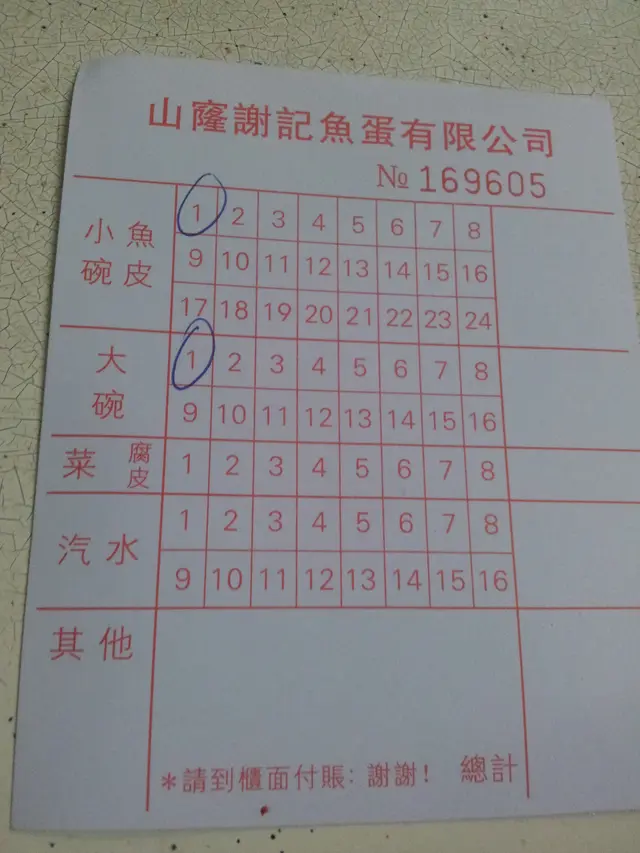 山窿謝記魚蛋有限公司
№ 169605
小 魚 1 2 3 4 5 6 7 8
碗 皮 9 10 11 12 13 14 15 16
17 18 19 20 21 22 23 24
大 1 2 3 4 5 6 7 8
碗 9 10 11 12 13 14 15 16
菜 腐皮 1 2 3 4 5 6 7 8
汽水 1 2 3 4 5 6 7 8
9 10 11 12 13 14 15 16
其他
*請到櫃面付賬: 謝謝! 總計